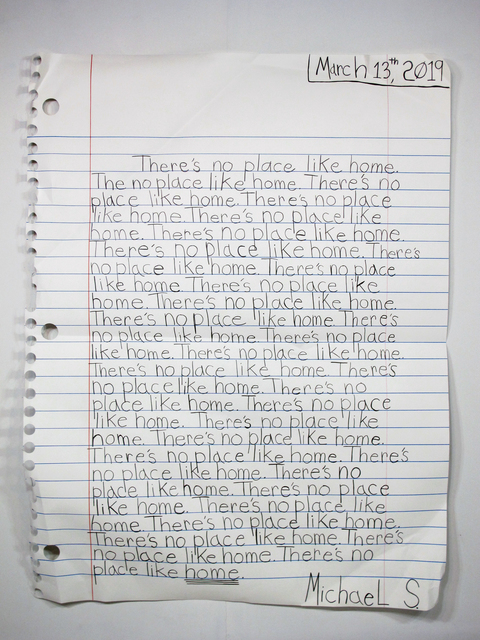 March 13th, 2019
There's no place like home.
The no place like home. There's no
place like home. There's no place
like home. There's no place like
home. There's no place like home.
There's no place like home. There's
no place like home. There's no place
like home. There's no place like
home. There's no place like home.
There's no place like home. There's
no place like home. There's no place
like home. There's no place like home.
There's no place like home. There's
no place like home. There's no
place like home. There's no place
like home. There's no place like
home. There's no place like home.
There's no place like home. There's
no place like home. There's no
place like home. There's no place
like home. There's no place like
home. There's no place like home.
There's no place like home. There's
no place like home. There's no
place like home.
Michael S.